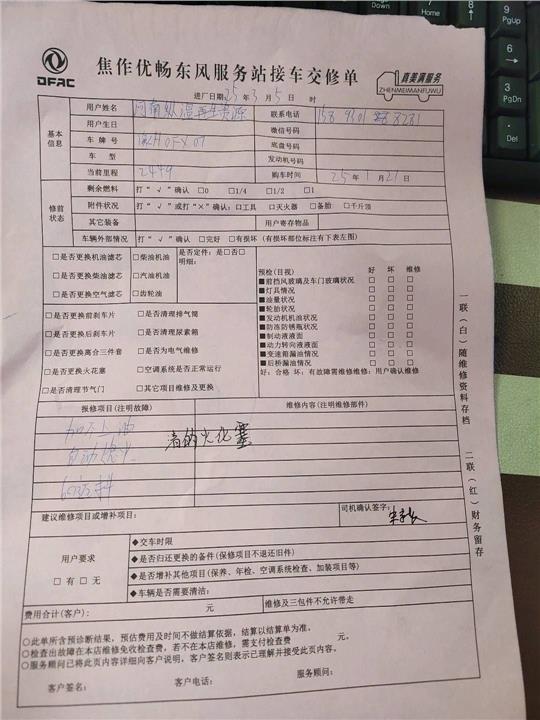 DFAC
焦作优畅东风服务站接车交修单
真美满服务
ZHENMEIMANFUWU
进厂日期 25年3月5日 时
基本信息
用户姓名 联系电话
用户生日 微信号码
车牌号 底盘号码
车型 发动机号码
当前里程 2449 购车时间 25年1月21日
修前状态
剩余燃料 打“√”确认 □0 □1/4 □1/2 □1
附件状况 打“√”或打“×”确认：□工具 □灭火器 □备胎 □千斤顶
其它装备 用户寄存物品
车辆外部情况 打“√”确认 □完好 □有损坏（有损坏部位标注有下表左图）
□是否更换机油滤芯 □柴油机油 是否定件：是□否□
明细：
□是否更换柴油滤芯 □汽油机油
□是否更换空气滤芯 □齿轮油
□是否更换前刹车片 □是否清理排气筒
□是否更换后刹车片 □是否清理尿素箱
□是否更换离合三件套 □是否为电气维修
□是否更换火花塞 □空调系统是否正常运行
□是否清理节气门 □其它项目维修及更换
预检(目视) 好 坏 维修
■前挡风玻璃及车门玻璃状况 □ □ □
■灯具情况 □ □ □
■油量状况 □ □ □
■轮胎状况 □ □ □
■发动机机油状况 □ □ □
■防冻防锈瓶状况 □ □ □
■制动液液面 □ □ □
■动力转向液液面 □ □ □
■变速箱漏油情况 □ □ □
■后桥漏油情况 □ □ □
好：合格 坏：有故障需维修维修：用户确认维修
报修项目(注明故障) 维修内容(注明维修部件)
加不上油
自动熄火
清钠火化塞
建议维修项目或增补项目：
司机确认签字：
用户要求
□有 □无
◆交车时限
◆是否归还更换的备件(保修项目不退还旧件)
◆是否增补其他项目(保养、年检、空调系统检查、加装项目等)
◆车辆是否需要清洁：
费用合计(客户)： 元 维修及三包件不允许带走
○此单所含预诊断结果，预估费用及时间不做结算依据，结算以结算单为准。
○检查出故障在本店维修免收检查费，若不在本店维修，需支付检查费 元。
○服务顾问已将此页内容详细向客户说明，客户签名则表示已理解并接受此页内容。
客户签名： 客户电话： 服务顾问：
一联(白)随维修资料存档
二联(红)财务留存
9
PgUp
Home
6
3
PgDn
Del